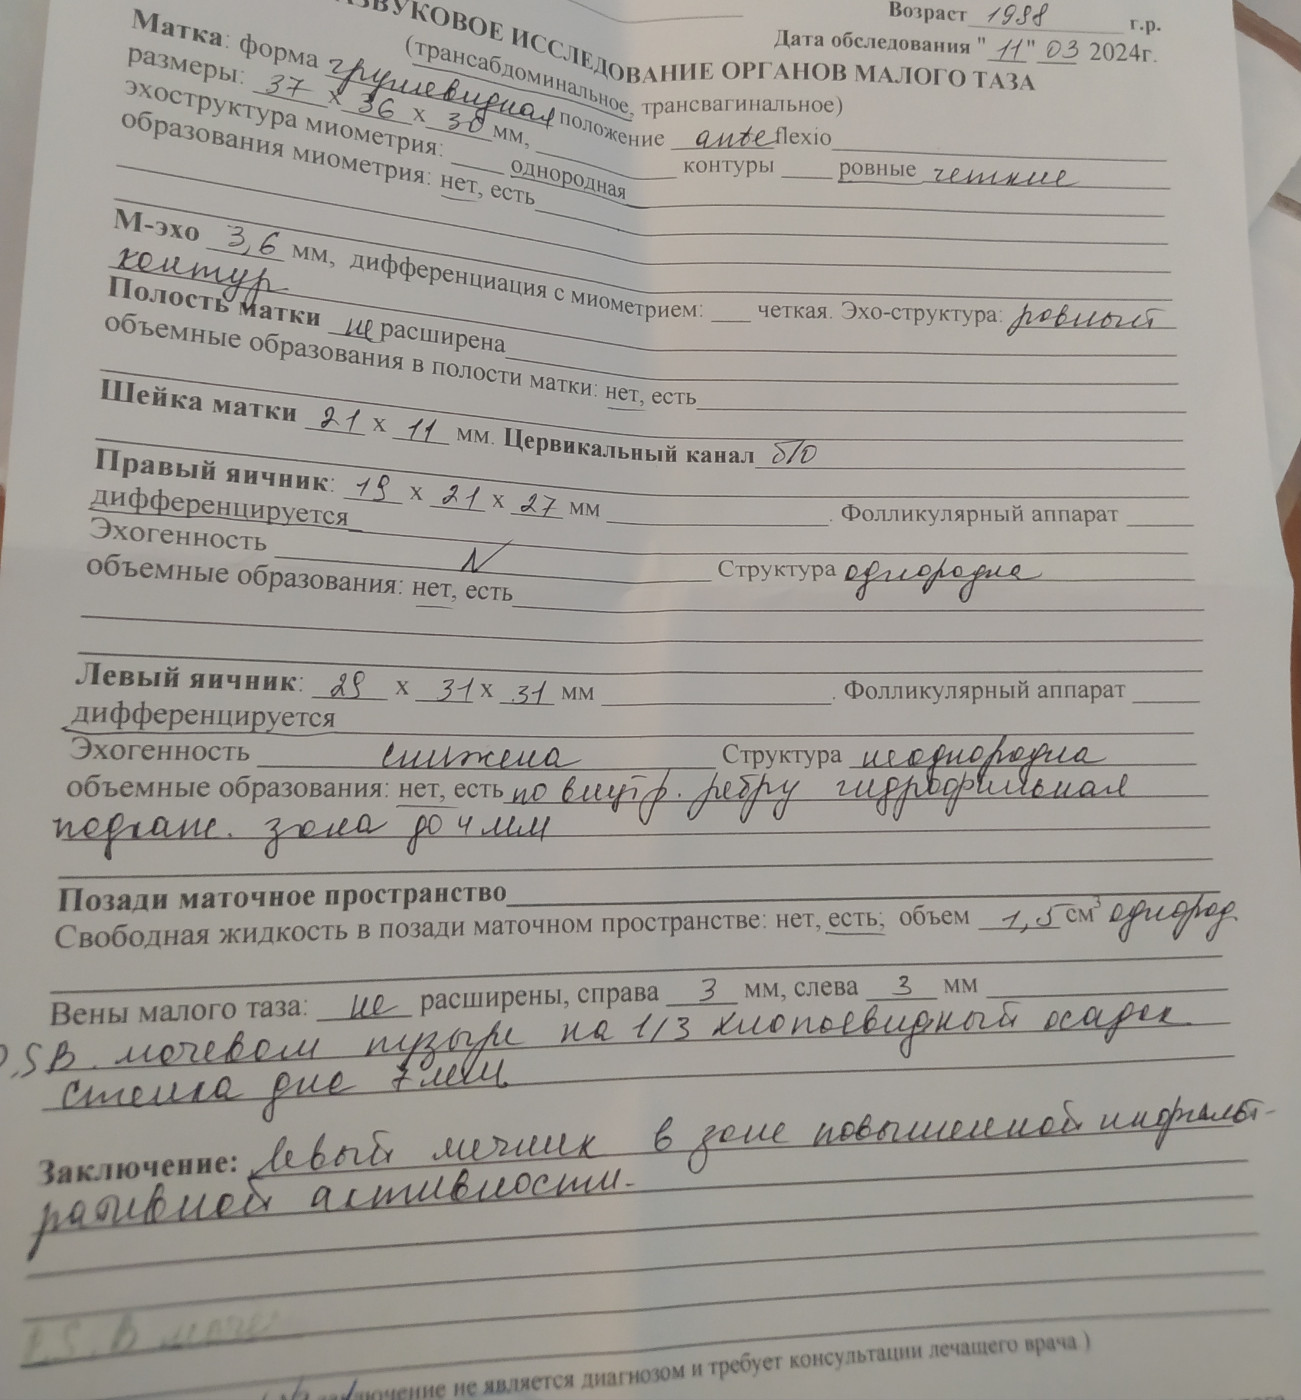 Возраст 1988 г.р.
Дата обследования "11" 03 2024г.
ЗВУКОВОЕ ИССЛЕДОВАНИЕ ОРГАНОВ МАЛОГО ТАЗА
(трансабдоминальное, трансвагинальное)
Матка: форма грушевидная положение anteflexio
размеры: 37 х 36 х 30 мм, контуры ровные четкие
эхоструктура миометрия: однородная
образования миометрия: нет, есть
М-эхо 3,6 мм, дифференциация с миометрием: четкая. Эхо-структура: ровный
контур
Полость матки не расширена
объемные образования в полости матки: нет, есть
Шейка матки 21 х 11 мм. Цервикальный канал б/о
Правый яичник: 19 х 21 х 27 мм . Фолликулярный аппарат
дифференцируется
Эхогенность N Структура однородна
объемные образования: нет, есть
Левый яичник: 29 х 31 х 31 мм . Фолликулярный аппарат
дифференцируется
Эхогенность снижена Структура неоднородна
объемные образования: нет, есть по внутр. ребру гидрофильная
подкапс. зона до 4 мм
Позади маточное пространство
Свободная жидкость в позади маточном пространстве: нет, есть; объем 1,5 см³ однород.
Вены малого таза: не расширены, справа 3 мм, слева 3 мм
P.S В. мочевом пузыре на 1/3 хлопьевидный осадок
стенка дне 7 мм
Заключение: Левый яичник в зоне повышенной инфильт-
ративной активности.
P.S. В моче
заключение не является диагнозом и требует консультации лечащего врача )